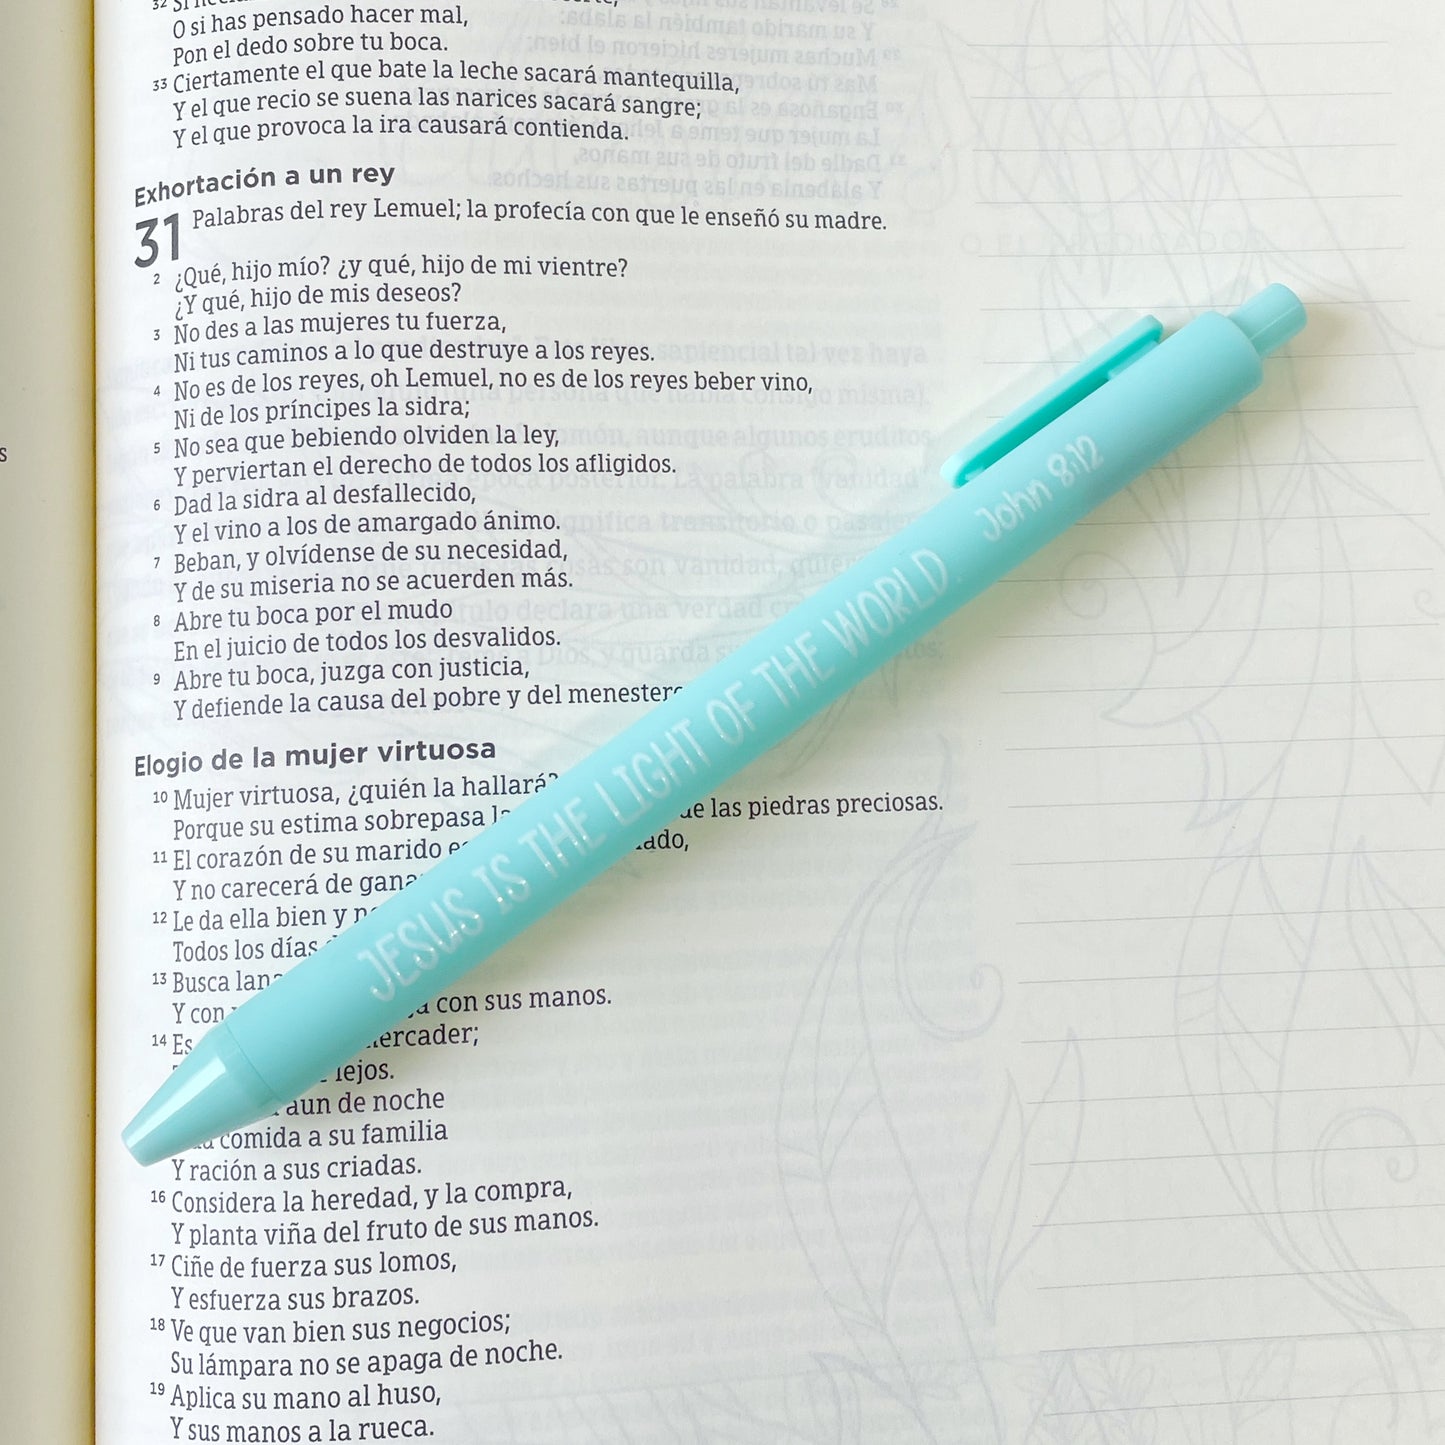 O si has pensado hacer mal,
Pon el dedo sobre tu boca.
33 Ciertamente el que bate la leche sacará mantequilla,
Y el que recio se suena las narices sacará sangre;
Y el que provoca la ira causará contienda.
Exhortación a un rey
31 Palabras del rey Lemuel; la profecía con que le enseñó su madre.
2 ¿Qué, hijo mío? ¿y qué, hijo de mi vientre?
¿Y qué, hijo de mis deseos?
3 No des a las mujeres tu fuerza,
Ni tus caminos a lo que destruye a los reyes.
4 No es de los reyes, oh Lemuel, no es de los reyes beber vino,
Ni de los príncipes la sidra;
5 No sea que bebiendo olviden la ley,
Y perviertan el derecho de todos los afligidos.
6 Dad la sidra al desfallecido,
Y el vino a los de amargado ánimo.
7 Beban, y olvídense de su necesidad,
Y de su miseria no se acuerden más.
8 Abre tu boca por el mudo
En el juicio de todos los desvalidos.
9 Abre tu boca, juzga con justicia,
Y defiende la causa del pobre y del
Elogio de la mujer virtuosa
10 Mujer virtuosa, ¿quién la hallará?
Porque su estima sobrepasa las piedras preciosas.
11 El corazón de su marido
Y no carecerá de
12 Le da ella bien y
Todos los días
13 Busca
Y con con sus manos.
14
lejos.
aun de noche
comida a su familia
Y ración a sus criadas.
16 Considera la heredad, y la compra,
Y planta viña del fruto de sus manos.
17 Ciñe de fuerza sus lomos,
Y esfuerza sus brazos.
18 Ve que van bien sus negocios;
Su lámpara no se apaga de noche.
19 Aplica su mano al huso,
Y sus manos a la rueca.
JESUS IS THE LIGHT OF THE WORLD. John 8:12